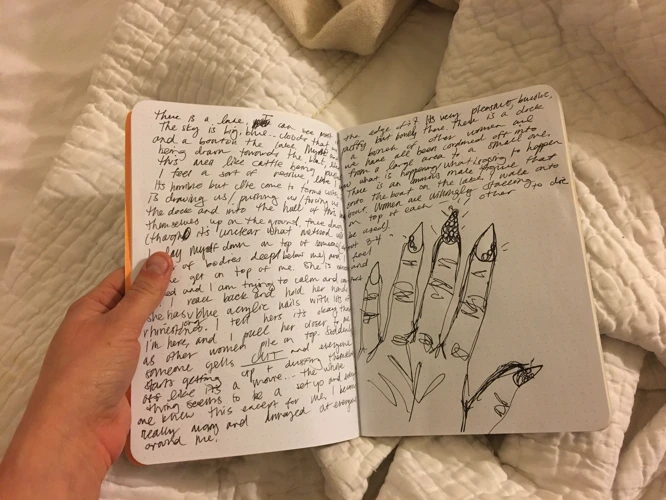 There is a lake, I can see most
The sky is big, blue... clover that
and a boat on the lake. Myself and
being drawn towards the boat, like
this area like cattle being
I feel a sort of passive, like I
its horrible but I've come to terms with
is drawing us / pulling us / forcing us
the dock and into the hull of this
themselves up on the ground, three deep
(though it's unclear what method will
I lay myself down on top of someone
of bodies deep below me) and
one get on top of me. She is
and I am trying to calm and
I reach back and hold her hand
She has long blue acrylic nails with lots of
rhinestones. I tell hers its okay that
I'm here, and I pull her closer to me
as other women pile on top. Suddenly
someone yells CUT and everyone
starts getting up + dusting themselves
its like its a movie... the whole
thing seems to be a set up and every
one knew this except for me, I become
really angry and enraged at everyone
around me!
the edge of it. Its very pleasant, bucolic,
pretty but lonely there. There is a dock
a bunch of other women and
we have all been corralled off into
from a large area to a small one.
know what is happening, what is going to happen
There is an ominous male figure that
onto the boat on the lake, I walk onto
boat. Women are willingly stacking
on top of each other to die
be used).
about 3-4
I feel
and